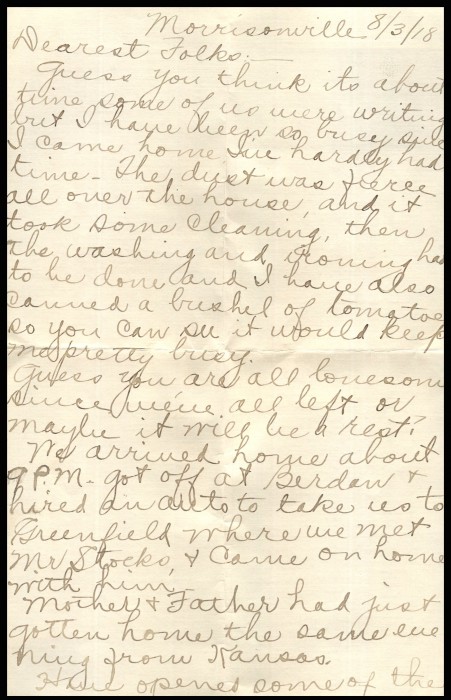 Morrisonville 8/3/18
Dearest Folks.
Guess you think its about
time some of us were writing
but I have been so busy
I came home I've hardly had
time - The dust was fierce
all over the house, and it
took some cleaning, then
the washing and ironing had
to be done and I have also
canned a bushel of tomatoes
so you can see it would keep
me pretty busy.
Guess you are all lonesome
since we've all left or
maybe it will be a rest?
We arrived home about
9 P.M. got off at Berdan +
hired an auto to take us to
Greenfield where we met
Mr Stocks, + came on home
with him.
Mother + Father had just
gotten home the same eve
ning from Kansas.
Have opened some of the